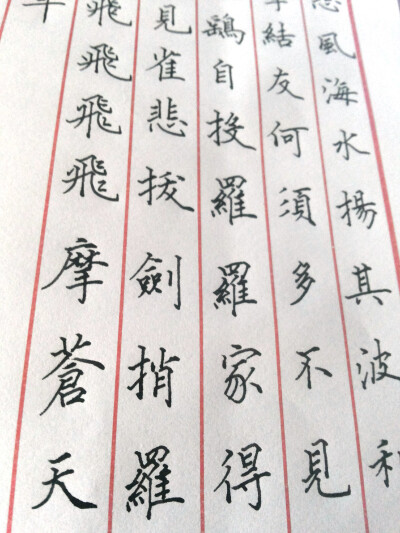 風海水揚其波
結友何須多不見
鷂自投羅羅家得
見雀悲拔劍捎羅
飛飛飛飛摩蒼天